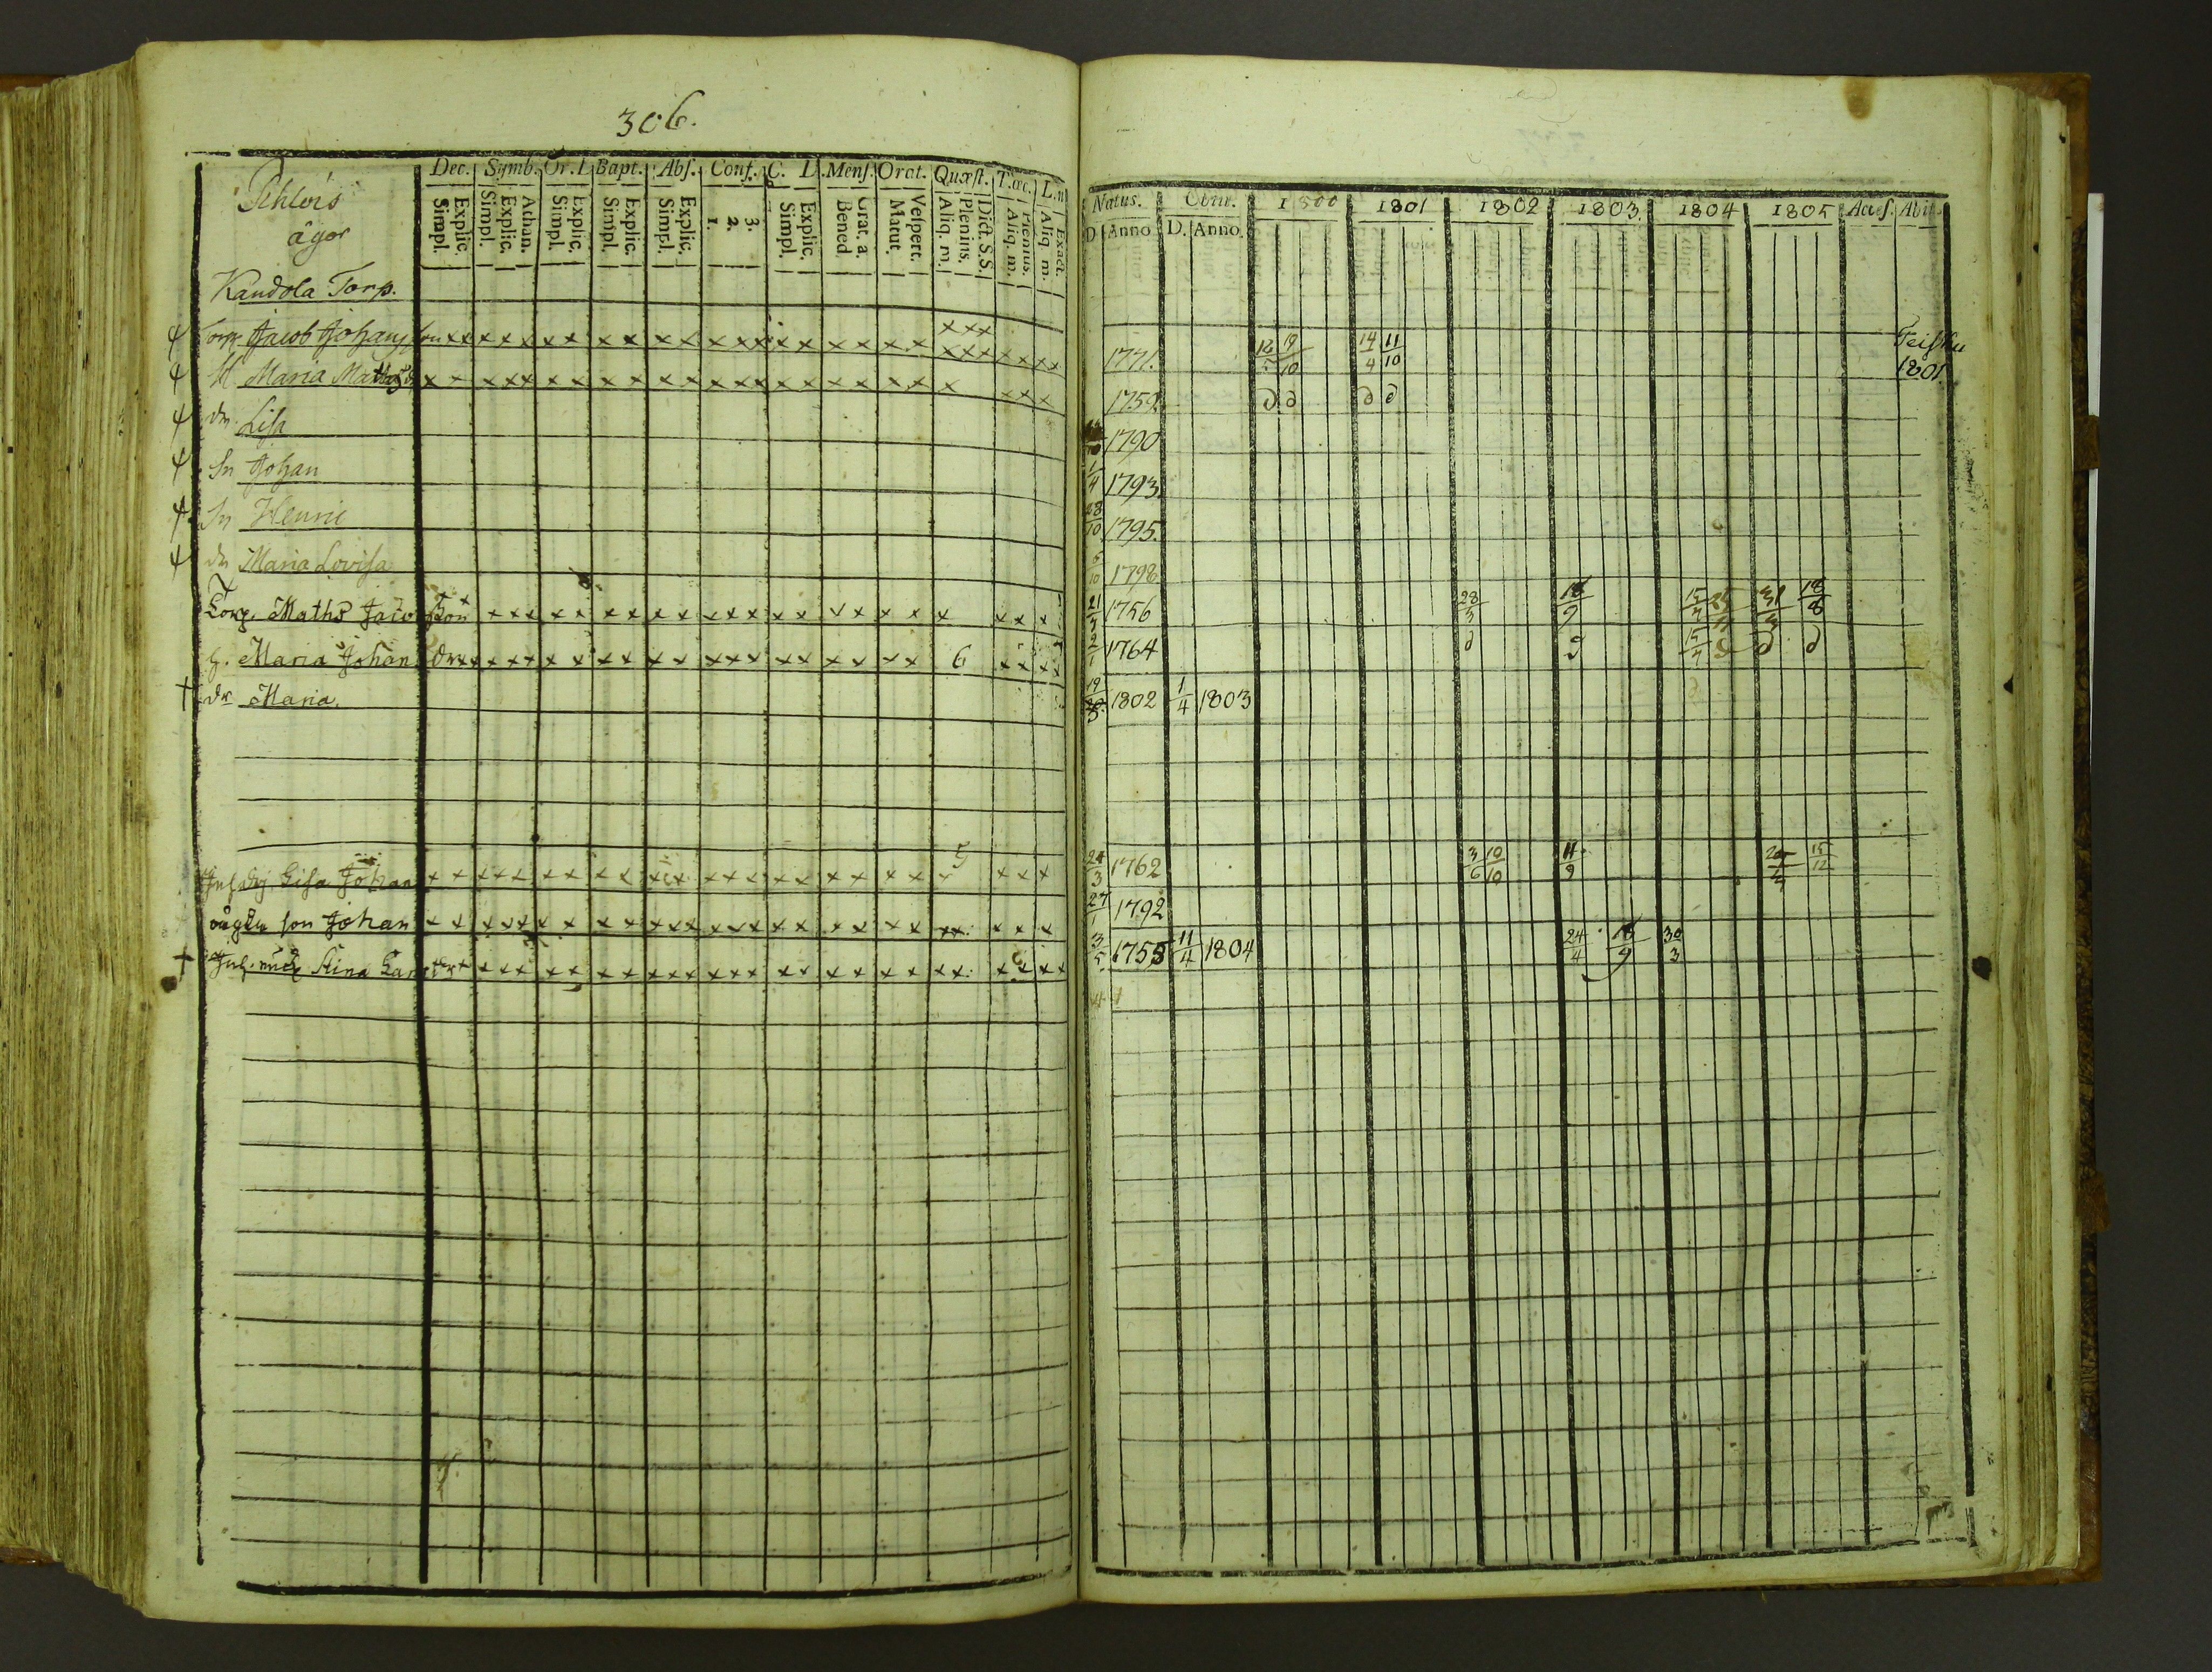 306.
Dec. Symb. Or. D. Bapt. Abs. Conf. C. D. Mens. Orat. Quæst. T. œc. L. n
Explic. Simpl. Athan. Explic. Simpl. Explic. Simpl. Explic. Simpl. Explic. Simpl. 3. 2. 1. Explic. Simpl. Grat. a. Bened. Vespert. Matut. Dict. S.S. Plenius. Aliq. m. Plenius. Aliq. m. Exact. Aliq. m.
äger
Kandola Torp.
Torp. Jacob Johansson x x x x x x x x x x x x x x x x x x x
H. Maria Mathsd x x x x x x x x x x x x x x x x x x x
dr. Lisa
Sn Johan
Sn Henric
dr Maria Lovisa
Torp. Maths Jacobsson x x x x x x x x x x x x x x x x x x x
h. Maria Johans Dr x x x x x x x x x x x x x x x x x x 6
† dr Maria.
Lisa Johan x x x x x x x x x x x x x x x x x x x
son Johan x x x x x x x x x x x x x x x x x x x
† Stina x x x x x x x x x x x x x x x x x x x
Natus. Obiit. 1800 1801 1802 1803 1804 1805 Acces. Abit.
D. Anno D. Anno.
1771. 19/10 14/4 11/10 1801.
1759. d d d d
1790
1/4 1793
28/10 1795.
6/10 1798
1756 28/3 18/8
2/1 1764 d d 15/4 d d d
19/3 1802 1/4 1803
24/3 1762 3/6 10/10 11/9 15/12
27/1 1792
3/5 1755 11/4 1804 24/4 18/9 30/3